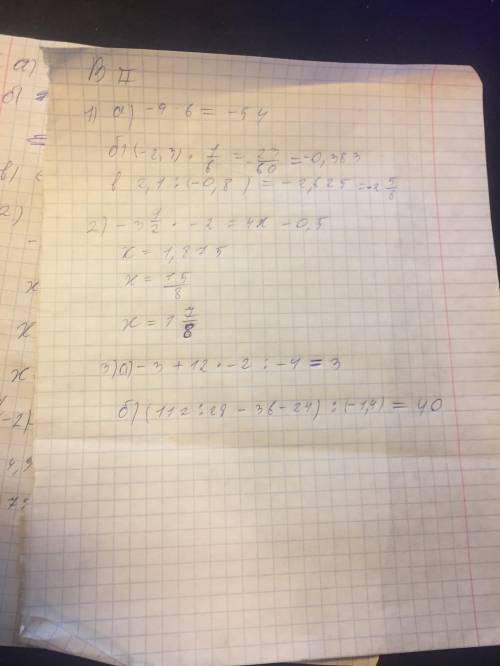 В II
1) а) -9 · 6 = -54
б) (-2,3) · 1/6 = -23/60 = -0,383
в 2,1 : (-0,8) = -2,625 = -2 5/8
2) -3 1/2 · -2 = 4x - 0,5
x = 1,875
x = 15/8
x = 1 7/8
3) а) -3 + 12 · -2 : -4 = 3
б) (112 : 28 - 36 - 24) : (-1,4) = 40